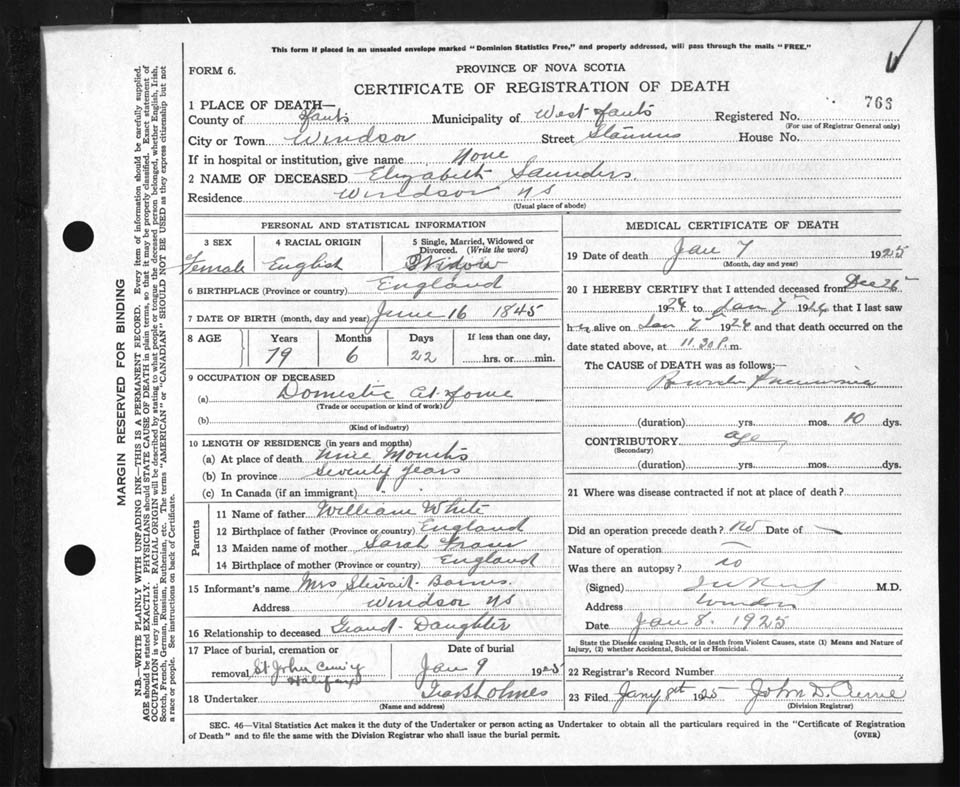 This form if placed in an unsealed envelope marked "Dominion Statistics Free," and properly addressed, will pass through the mails "FREE."
FORM 6.
PROVINCE OF NOVA SCOTIA
CERTIFICATE OF REGISTRATION OF DEATH
763
1 PLACE OF DEATH—
County of Hants Municipality of West Hants Registered No.
(For use of Registrar General only)
City or Town Windsor Street House No.
If in hospital or institution, give name None
2 NAME OF DECEASED Elizabeth Saunders.
Residence Windsor NS
(Usual place of abode)
PERSONAL AND STATISTICAL INFORMATION
3 SEX 4 RACIAL ORIGIN 5 Single, Married, Widowed or Divorced. (Write the word)
Female English Widow
6 BIRTHPLACE (Province or country) England
7 DATE OF BIRTH (month, day and year) June 16 1845
8 AGE Years Months Days If less than one day,
79 6 22 hrs. or min.
9 OCCUPATION OF DECEASED
(a) Domestic At Home
(Trade or occupation or kind of work)
(b)
(Kind of industry)
10 LENGTH OF RESIDENCE (in years and months)
(a) At place of death Nine Months
(b) In province Seventy years
(c) In Canada (if an immigrant)
Parents
11 Name of father William White
12 Birthplace of father (Province or country) England
13 Maiden name of mother Sarah
14 Birthplace of mother (Province or country) England
15 Informant's name Mrs Stewart Barnes.
Address Windsor NS
16 Relationship to deceased Grand-Daughter
17 Place of burial, cremation or Date of burial
removal St John Halifax Jan 9 1925
18 Undertaker Holmes
(Name and address)
MEDICAL CERTIFICATE OF DEATH
19 Date of death Jan 7 1925
(Month, day and year)
20 I HEREBY CERTIFY that I attended deceased from Dec 26
1924 to Jan 7 1924 that I last saw
her alive on Jan 7 1924 and that death occurred on
date stated above, at 11.30 P.m.
The CAUSE of DEATH was as follows:—
Broncho Pneumonia
(duration) yrs. mos. 10 dys.
CONTRIBUTORY age
(Secondary)
(duration) yrs. mos. dys.
21 Where was disease contracted if not at place of death?
Did an operation precede death? No Date of
Nature of operation
Was there an autopsy? no
(Signed) M.D.
Address Windsor
Date Jan 8. 1925
State the Disease causing Death, or in death from Violent Causes, state (1) Means and Nature of
Injury, (2) whether Accidental, Suicidal or Homicidal.
22 Registrar's Record Number
23 Filed Jany 8th 1925 John D.
(Division Registrar)
SEC. 46—Vital Statistics Act makes it the duty of the Undertaker or person acting as Undertaker to obtain all the particulars required in the "Certificate of Registration
of Death" and to file the same with the Division Registrar who shall issue the burial permit.
(OVER)
MARGIN RESERVED FOR BINDING
N.B.—WRITE PLAINLY WITH UNFADING INK—THIS IS A PERMANENT RECORD. Every item of information should be carefully supplied.
AGE should be stated EXACTLY. PHYSICIANS should STATE CAUSE OF DEATH in plain terms, so that it may be properly classified. Exact statement of
OCCUPATION is very important. RACIAL ORIGIN will be described by stating to what people or tongue the deceased person belonged, whether English, Irish,
Scotch, French, German, Russian, Ruthenian, etc. The terms "AMERICAN" or "CANADIAN" SHOULD NOT BE USED as they express citizenship but not
a race or people. See instructions on back of Certificate.